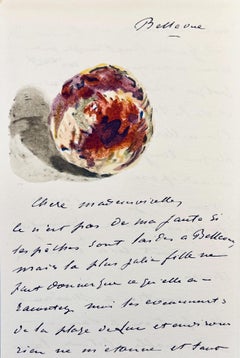 Bellevue
Chère mademoiselle,
ce n'est pas de ma faute si
les pêches sont laides a Bellevue
mais la plus jolie fille ne
peut donner que ce qu'elle a
mais les evenements
de la plage de et environs
rien ne m'etonne et tout